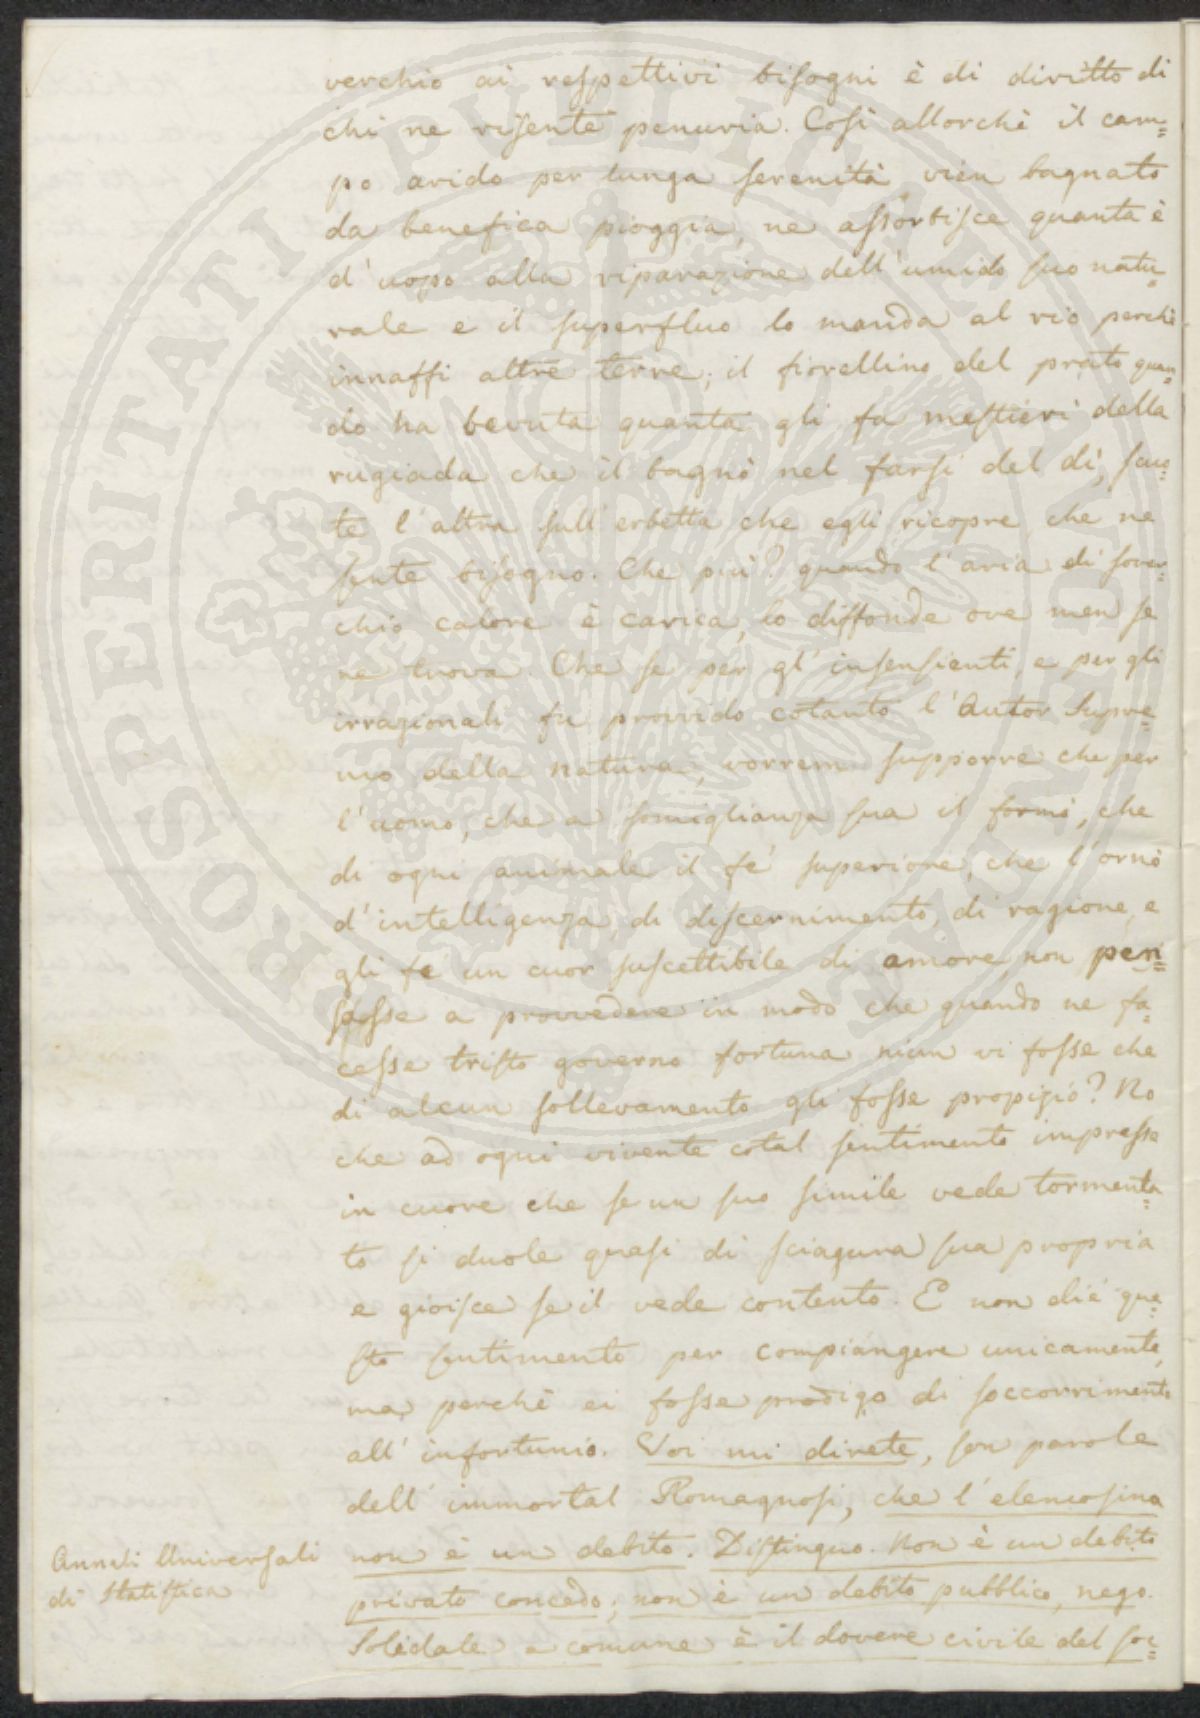 verchio ai respettivi bisogni è di diritto di
chi ne risente penuria. Così allorchè il cam=
po arido per lunga serenità vien bagnato
da benefica pioggia, ne assorbisce quanta è
d'uopo alla riparazione dell'umido suo natu=
rale e il superfluo lo manda al rio perchè
innaffi altre terre; il fiorellino del prato quan=
do ha bevuta quanta gli fa mestieri della
rugiada che il bagnò nel farsi del dì, scuo=
te l'altra sull'erbetta che egli ricopre, che ne
sente bisogno. Che più? quando l'aria di sover=
chio calore è carica, lo diffonde ove men se
ne trova. Che se per gl'insensienti, e per gli
irragionali fu provvido cotanto l'Autor Supre=
mo della natura, vorrem supporre che per
l'uomo, che a somiglianza sua il formò, che
di ogni animale il fe' superiore, che l'ornò
d'intelligenza, di discernimento, di ragione, e
gli fe' un cuor suscettibile di amore, non pen=
sasse a provvedere in modo che quando ne fa=
cesse tristo governo fortuna niun vi fosse che
di alcun sollevamento gli fosse propizio? No
che ad ogni vivente cotal sentimento impresse
in cuore che se un suo simile vede tormenta=
to si duole quasi di sciagura sua propria
e gioisce se il vede contento. E non diè que=
sto sentimento per compiangere unicamente,
ma perchè ei fosse prodigo di soccorrimento
all'infortunio. Voi mi direte, son parole
dell'immortal Romagnosi, che l'elemosina
non è un debito. Distinguo. Non è un debito
privato concedo; non è un debito pubblico, nego.
Solidale e comune è il dovere civile del soc=
Annali Universali
di Statistica
PROSPERITATI PUBLICAE AUGENDAE